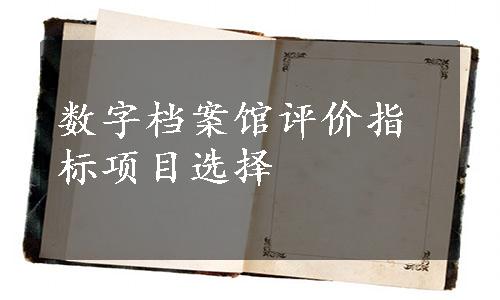 数字档案馆评价指
标项目选择